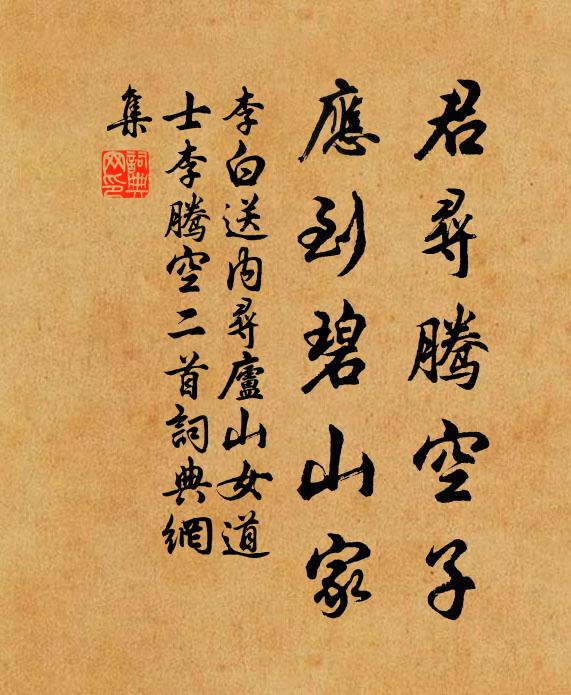 君尋騰空子
應到碧山家
李白送内尋廬山女道
士李騰空二首詞典網
集
詞典網印